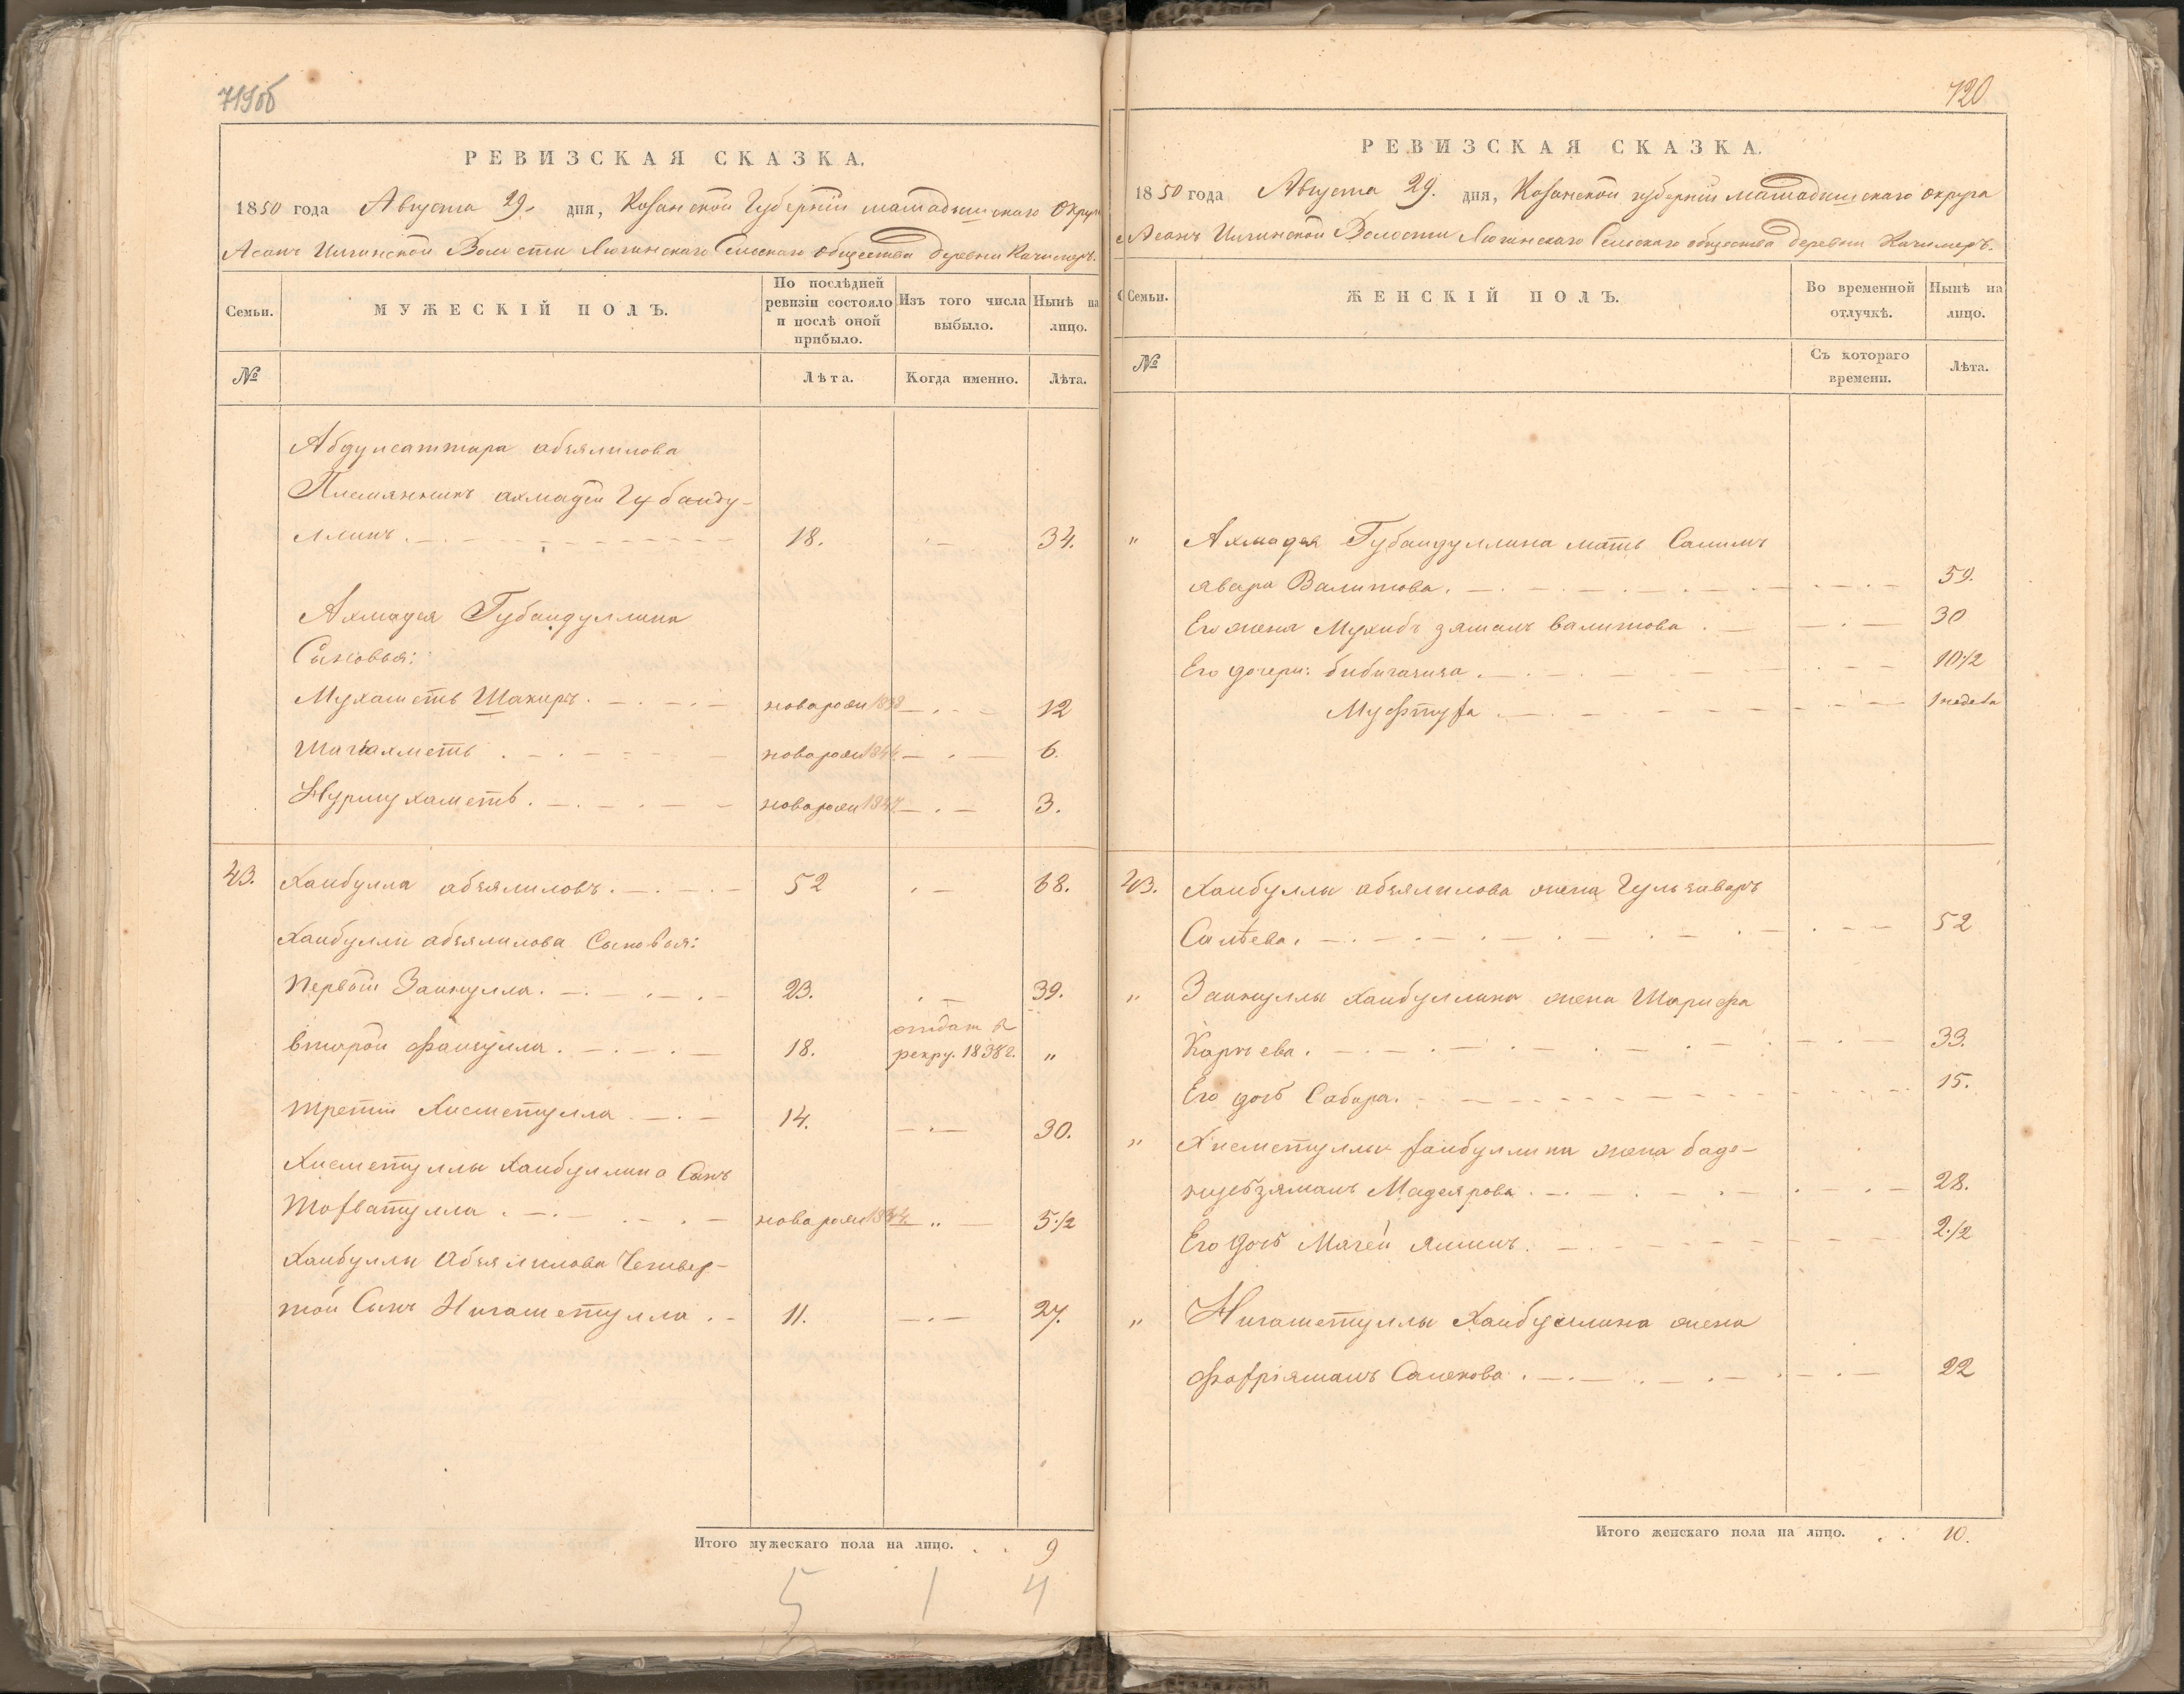 719об
РЕВИЗСКАЯ СКАЗКА.
1850 года Августа 29. дня, Казанской Губерніи мамадышскаго Округа
Асанъ Илгинской Волости Люгинскаго Сельскаго общества деревни Качимеръ.
Семьи.
МУЖЕСКІЙ ПОЛЪ.
По послѣдней
ревизіи состояло
и послѣ оной
прибыло.
Изъ того числа
выбыло.
Нынѣ на
лицо.
№
Лѣта.
Когда именно.
Лѣта.
Абдулсаттара абзялилова
Племянникъ ахмадѣй Губайду-
ллинъ. 18. 34.
Ахмадея Губайдуллина
Сыновья:
Мухаметь Шакиръ. новорожд 1838 12
Шагіахметь новорожд 1844. 6.
Нурмухаметь. новорожд 1847 3.
43. Хаибулла абзялиловъ. 52 68.
Хаибуллы абзялилова Сыновья:
первый Зайнулла. 23. 39.
второй Файзулла. 18. отдат в
рекру. 1838 г. "
третій Хисметулла 14. 30.
Хисметуллы Хаибуллина Сынъ
Тофватулла. новорожд 1844 " 5 1/2
Хаибуллы Абзялилова Четвер-
той Сынъ Нигаметулла. 11. 27.
Итого мужескаго пола на лицо. . . 9
5 1 4
720
РЕВИЗСКАЯ СКАЗКА.
1850 года Августа 29. дня, Казанской губерніи мамадышскаго округа
Асанъ Илгинской Волости Люгинскаго Сельскаго общества деревни Качимеръ.
Семьи.
ЖЕНСКІЙ ПОЛЪ.
Во временной
отлучкѣ.
Нынѣ на
лицо.
№
Съ котораго
времени.
Лѣта.
" Ахмадея Губайдуллина мать Салимъ
явара Валитова. 59.
Его жена Мухибъ зямалъ валитова. 30
Его дочери: бибигазиза. 10 1/2
Муфтуха. 1 недела
43. Хаибуллы абзялилова жена Гульзаваръ
Салѣева. 52
" Зайнуллы Хаибуллина жена Шарифа
Карпеева. 33.
Его дочь Сабира. 15.
" Хисметуллы Хаибуллина жена баде-
нцебзямалъ Мадеярова. 28.
Его дочь Магей ямилъ. 2 1/2
" Нигаметуллы Хаибуллина жена
Фахріямалъ Салехова. 22
Итого женскаго пола на лицо. . . 10.